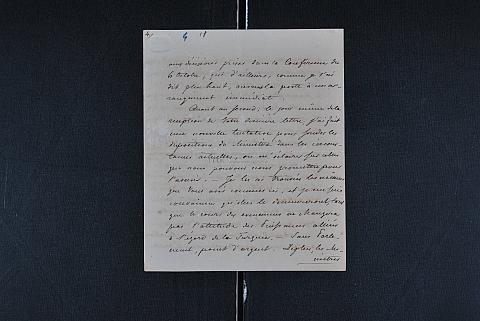 4 18
aux décisions prises dans la Conférence du
6 Octobre, qui d'ailleurs, comme je l'ai
dit plus haut, ouvrent la porte à un ar-
rangement immédiat.
Quant au second, le jour même de la
réception de Votre dernière lettre, j'ai fait
une nouvelle tentative pour sonder les
dispositions du Ministère dans les circons-
tances actuelles, ou m'éclairer sur celles
que nous pouvons nous promettre pour
l'avenir. — Je les ai trouvées les mêmes
que Vous avez connues ici, et je me suis
convaincu qu'elles le demeureront, tant
que le cours des événements ne changera
pas l'attitude des Puissances alliées
à l'égard de la Turquie. — Sans Parle-
ment, point d'argent. les Mi-
nistres